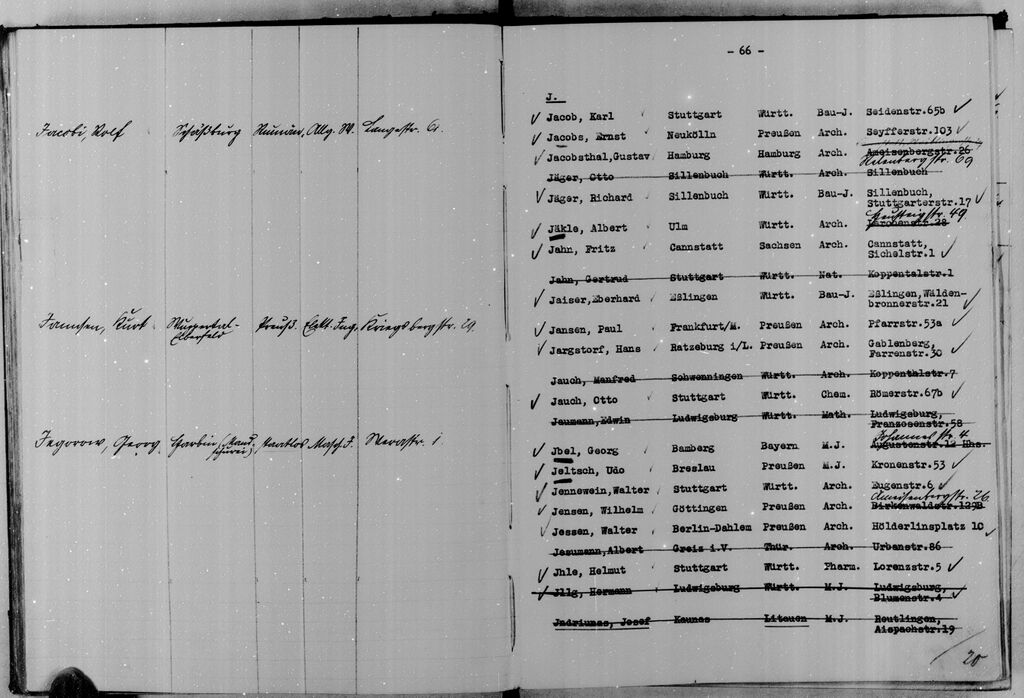 Jacobi, Rolf Schäßburg Rumän. Allg. W. Langestr. 61.
Janssen, Kurt Wuppertal- Preuß. Elekt. Ing. Kriegsbergstr. 29.
Elberfeld
Jegorow, Georg Charbin (Mand- staatlos Masch. J. Nerastr. 1
schurei)
- 66 -
J.
Jacob, Karl Stuttgart Württ. Bau-J. Seidenstr.65b
Jacobs, Ernst Neukölln Preußen Arch. Seyfferstr.103
Jacobsthal,Gustav Hamburg Hamburg Arch. Ameisenbergstr.26
Relenbergstr. 69
Jäger, Otto Sillenbuch Württ. Arch. Sillenbuch
Jäger, Richard Sillenbuch Württ. Bau-J. Sillenbuch,
Stuttgarterstr.17
Neusteigstr. 49
Jäkle, Albert Ulm Württ. Arch. Lerchenstr.28
Jahn, Fritz Cannstatt Sachsen Arch. Cannstatt,
Sichelstr.1
Jahn, Gertrud Stuttgart Württ. Nat. Koppentalstr.1
Jaiser,Eberhard Eßlingen Württ. Bau-J. Eßlingen,Wäldenbronnerstr.21
Jansen, Paul Frankfurt/M. Preußen Arch. Pfarrstr.53a
Jargstorf, Hans Ratzeburg i/L. Preußen Arch. Gablenberg,
Farrenstr.30
Jauch, Manfred Schwenningen Württ. Arch. Koppenthalstr.7
Jauch, Otto Stuttgart Württ. Chem. Römerstr.67b
Jaumann,Edwin Ludwigsburg Württ. Math. Ludwigsburg,
Franzosenstr.58
Johannesstr. 4
Jbel, Georg Bamberg Bayern M.J. Augustenstr.12 Hhs.
Jeltsch, Udo Breslau Preußen M.J. Kronenstr.53
Jennewein,Walter Stuttgart Württ. Arch. Eugenstr.6
Ameisenbergstr. 26
Jensen, Wilhelm Göttingen Preußen Arch. Birkenwaldstr.129B
Jessen, Walter Berlin-Dahlem Preußen Arch. Hölderlinsplatz 10
Jesumann,Albert Greiz i.V. Thür. Arch. Urbanstr.86
Jhle, Helmut Stuttgart Württ. Pharm. Lorenzstr.5
Jllg, Hermann Ludwigsburg Württ. M.J. Ludwigsburg,
Blumenstr.4
Jndriunas, Josef Kaunas Litauen M.J. Reutlingen,
Aispachstr.19
20